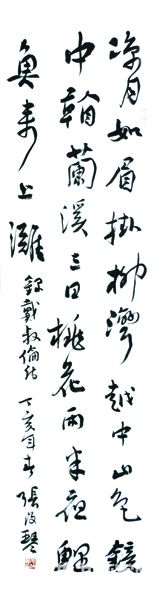 涼月如眉掛柳灣越中山色鏡
中看蘭溪三日桃花雨半夜鯉
魚來上灘
錄戴叔倫詩 丁亥年春 張琴